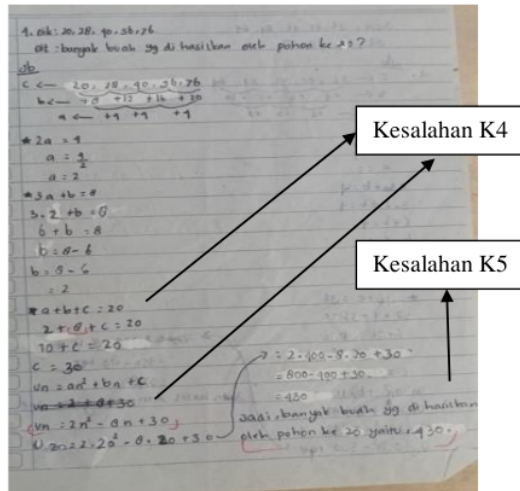 1. Dik: 20, 28, 40, 56, 76
Dit : banyak buah yg di hasilkan oleh pohon ke 20?
Jb
c ← 20, 28, 40, 56, 76
b ← +8 +12 +16 +20
a ← +4 +4 +4
* 2a = 4
a = 4/2
a = 2
* 3a + b = 8
3. 2 + b = 8
6 + b = 8
b = 8 - 6
b = 8 - 6
= 2
* a + b + c = 20
2 + 8 + c = 20
10 + c = 20
c = 30
Un = an² + bn + c
Un = 2 + 8 + 30
Un = 2n² - 8n + 30
U20 = 2. 20² - 8. 20 + 30
= 2. 400 - 8. 20 + 30
= 800 - 400 + 30
= 430
Jadi, banyak buah yg di hasilkan
oleh pohon ke 20 yaitu = 430.
Kesalahan K4
Kesalahan K5